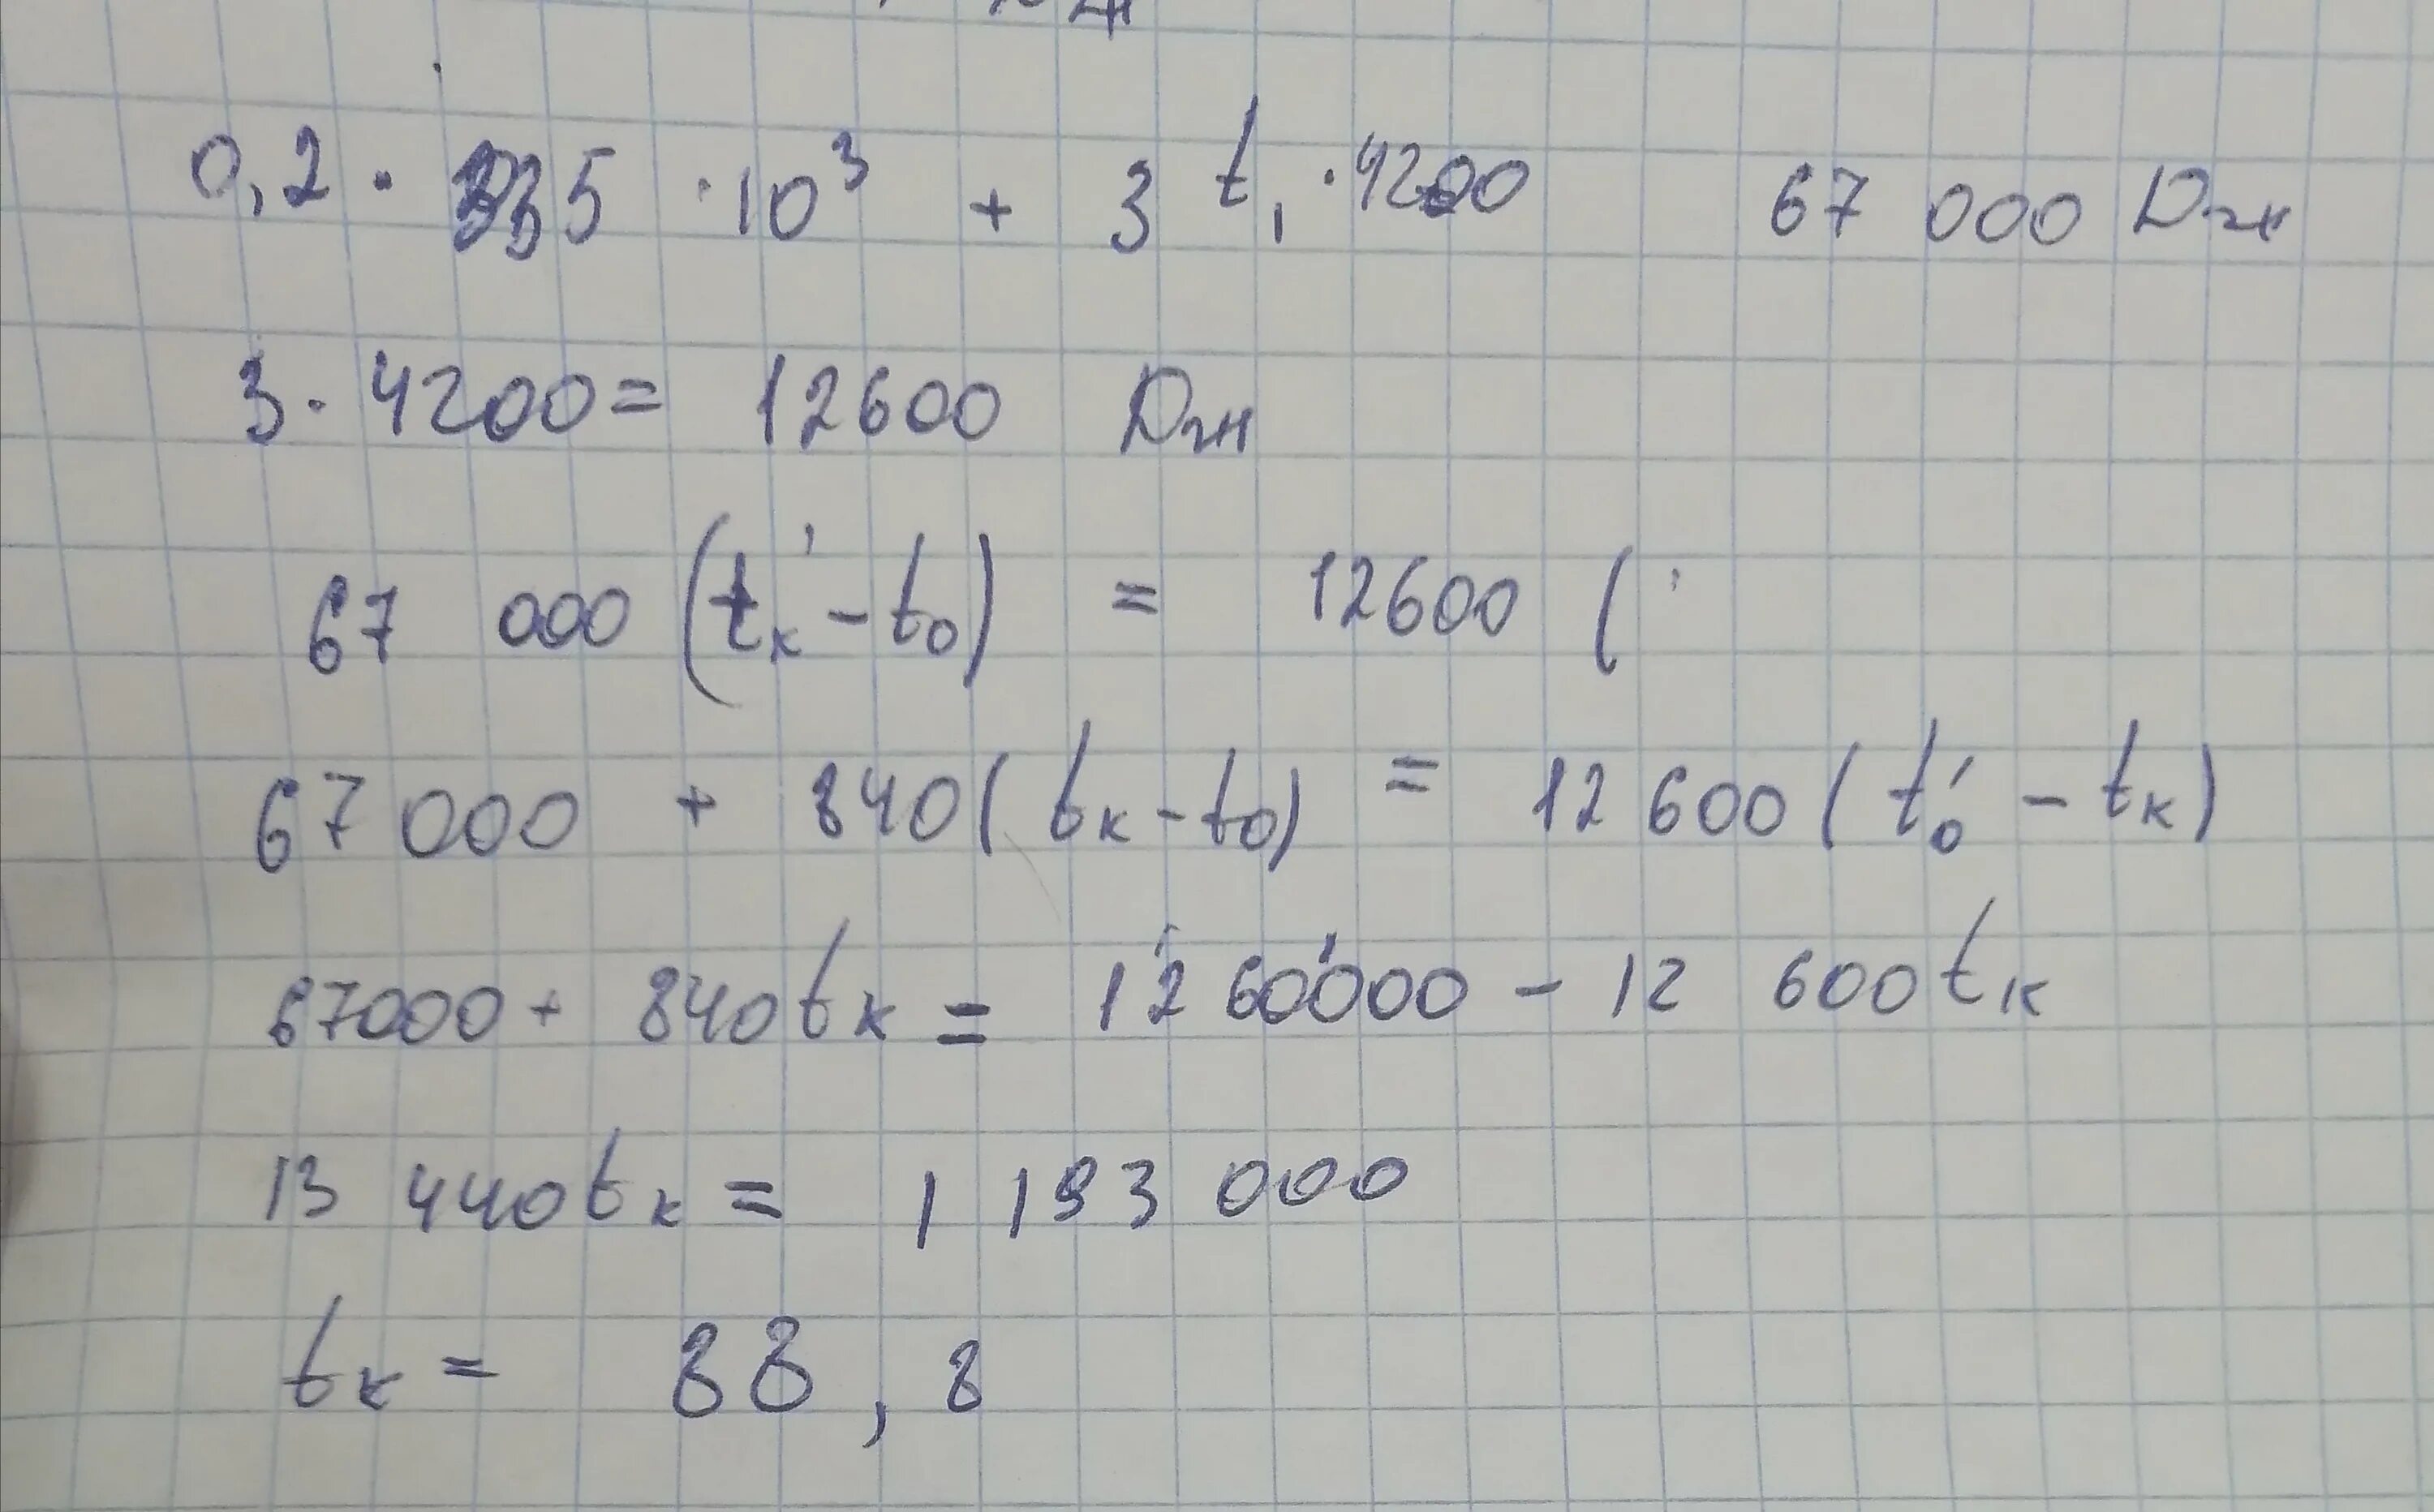 0,2 · 335 · 10³ + 3 t₁ · 4200 67 000 Дж
3 · 4200 = 12600 Дж
67 000 (tк' - t₀) = 12600 (
67 000 + 840 (tк - t₀) = 12 600 (t₀' - tк)
67000 + 840 tк = 1260000 - 12 600 tк
13 440 tк = 1 193 000
tк = 88,8